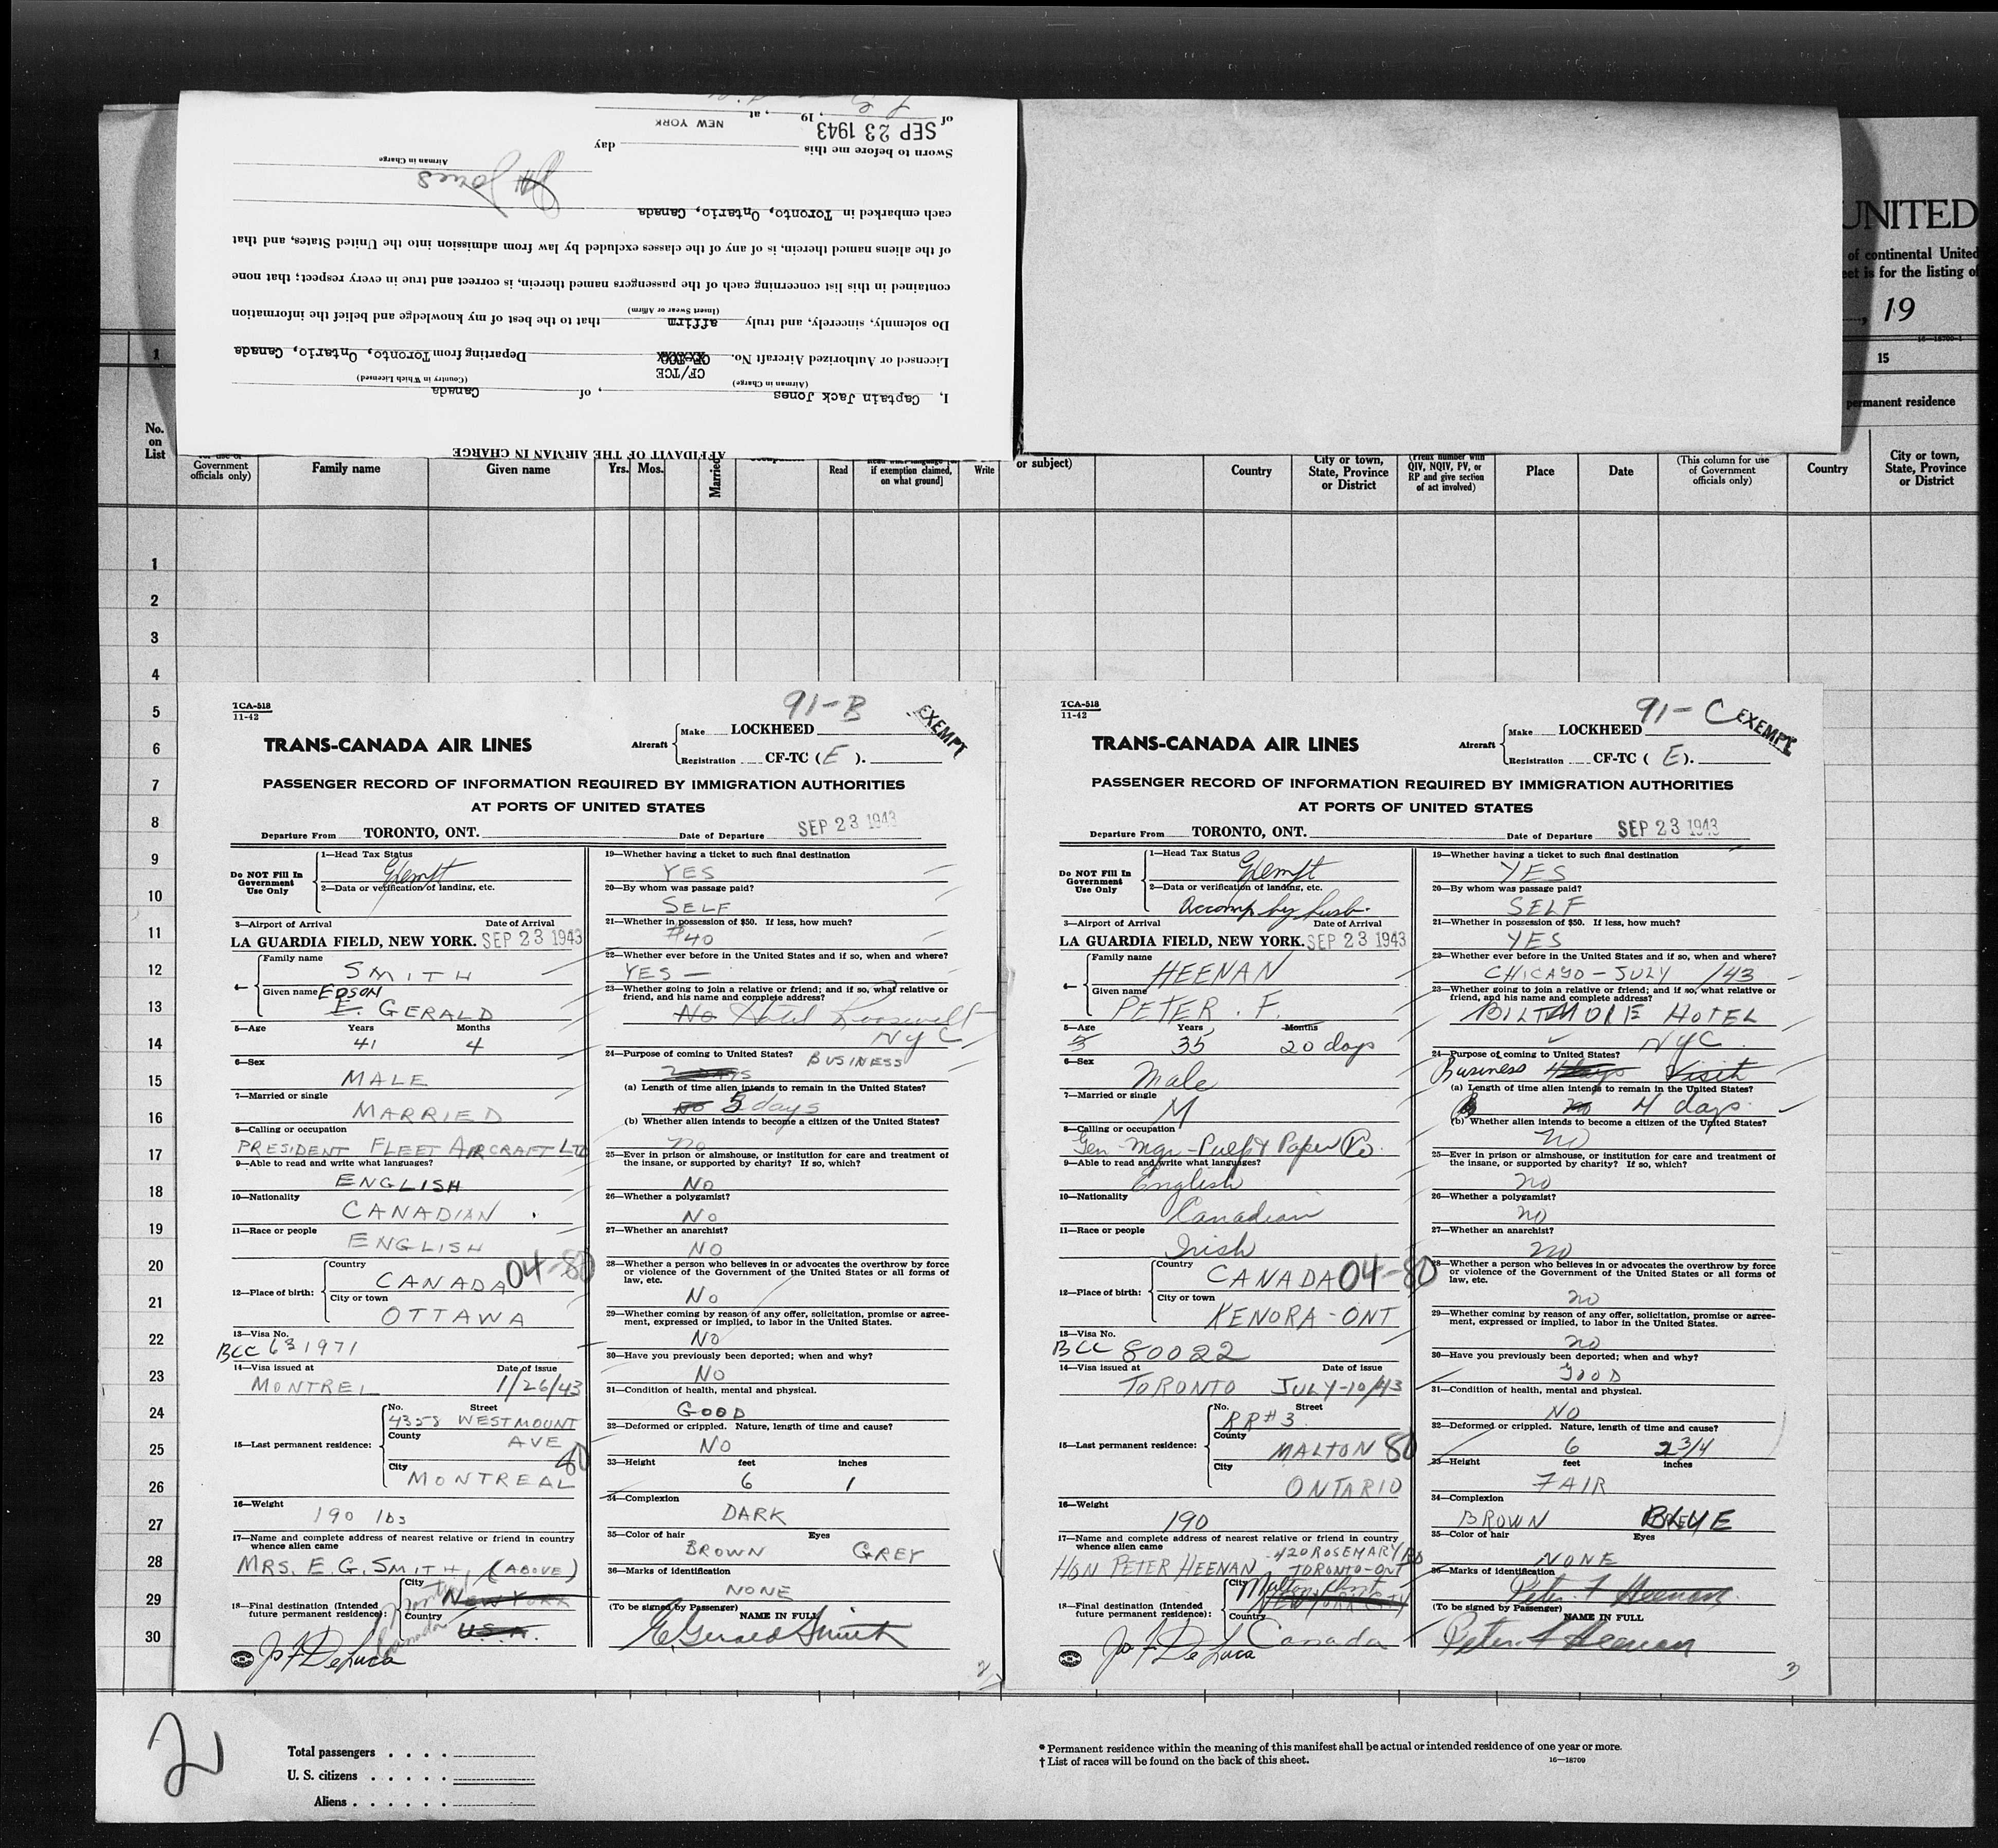 AFFIDAVIT OF THE AIRMAN IN CHARGE
I, Captain Jack Jones, of Canada
(Airman in Charge) (Country in Which Licensed)
CF/TCE
Licensed or Authorized Aircraft No. Departing from Toronto, Ontario, Canada
Do solemnly, sincerely, and truly affirm that to the best of my knowledge and belief the information
(Insert Swear or Affirm)
contained in this list concerning each of the passengers named therein, is correct and true in every respect; that none
of the aliens named therein, is of any of the classes excluded by law from admission into the United States, and that
each embarked in Toronto, Ontario, Canada
Jones
Airman in Charge
Sworn to before me this day
of SEP 23 1943, 19 , at NEW YORK
UNITED
of continental United
eet is for the listing of
, 19
1
15
permanent residence
No. on List
Government officials only)
Family name
Given name
Yrs. Mos.
Married
Read
if exemption claimed, on what ground]
Write
or subject)
Country
City or town, State, Province or District
(Prefix number with QIV, NQIV, PV, or RP and give section of act involved)
Place
Date
(This column for use of Government officials only)
Country
City or town, State, Province or District
1
2
3
4
5
6
7
8
9
10
11
12
13
14
15
16
17
18
19
20
21
22
23
24
25
26
27
28
29
30
TCA-518
11-42
91-B
EXEMPT
TRANS-CANADA AIR LINES
Aircraft
Make LOCKHEED
Registration CF-TC ( E ).
PASSENGER RECORD OF INFORMATION REQUIRED BY IMMIGRATION AUTHORITIES
AT PORTS OF UNITED STATES
Departure From TORONTO, ONT. Date of Departure SEP 23 1943
Do NOT Fill In
Government
Use Only
1—Head Tax Status
Exempt
2—Data or verification of landing, etc.
3—Airport of Arrival Date of Arrival
LA GUARDIA FIELD, NEW YORK. SEP 23 1943
4—
Family name
SMITH
Given name EDSON
E. GERALD
5—Age Years Months
41 4
6—Sex
MALE
7—Married or single
MARRIED
8—Calling or occupation
PRESIDENT FLEET AIRCRAFT LTD
9—Able to read and write what languages?
ENGLISH
10—Nationality
CANADIAN
11—Race or people
ENGLISH
12—Place of birth:
Country
CANADA 04-80
City or town
OTTAWA
13—Visa No.
BCC 631971
14—Visa issued at Date of issue
MONTREL 1/26/43
15—Last permanent residence:
No. Street
4358 WESTMOUNT
County
AVE
80
City
MONTREAL
16—Weight
190 lbs
17—Name and complete address of nearest relative or friend in country
whence alien came
MRS. E. G. SMITH, (ABOVE)
18—Final destination (Intended
future permanent residence):
City
Montreal
NEW YORK
Country
Canada
U.S.A.
Jos F De Luca
19—Whether having a ticket to such final destination
YES
20—By whom was passage paid?
SELF
21—Whether in possession of $50. If less, how much?
$40
22—Whether ever before in the United States and if so, when and where?
YES —
23—Whether going to join a relative or friend; and if so, what relative or
friend, and his name and complete address?
No Hotel Roosevelt
NYC
24—Purpose of coming to United States? BUSINESS
2 DAYS
(a) Length of time alien intends to remain in the United States?
No 5 days
(b) Whether alien intends to become a citizen of the United States?
no
25—Ever in prison or almshouse, or institution for care and treatment of
the insane, or supported by charity? If so, which?
NO
26—Whether a polygamist?
NO
27—Whether an anarchist?
NO
28—Whether a person who believes in or advocates the overthrow by force
or violence of the Government of the United States or all forms of
law, etc.
NO
29—Whether coming by reason of any offer, solicitation, promise or agree-
ment, expressed or implied, to labor in the United States.
NO
30—Have you previously been deported; when and why?
NO
31—Condition of health, mental and physical.
GOOD
32—Deformed or crippled. Nature, length of time and cause?
NO
33—Height feet inches
6 1
34—Complexion
DARK
35—Color of hair Eyes
BROWN GREY
36—Marks of identification
NONE
(To be signed by Passenger) NAME IN FULL
E. Gerald Smith
2
TCA-518
11-42
91-C
EXEMPT
TRANS-CANADA AIR LINES
Aircraft
Make LOCKHEED
Registration CF-TC ( E ).
PASSENGER RECORD OF INFORMATION REQUIRED BY IMMIGRATION AUTHORITIES
AT PORTS OF UNITED STATES
Departure From TORONTO, ONT. Date of Departure SEP 23 1943
Do NOT Fill In
Government
Use Only
1—Head Tax Status
Exempt
2—Data or verification of landing, etc.
Accomp by husb.
3—Airport of Arrival Date of Arrival
LA GUARDIA FIELD, NEW YORK. SEP 23 1943
4—
Family name
HEENAN
Given name
PETER . F.
5—Age Years Months
35 20 days
6—Sex
Male
7—Married or single
M
8—Calling or occupation
Gen-Mgr-Pulp & Paper Co.
9—Able to read and write what languages?
English
10—Nationality
Canadian
11—Race or people
Irish
12—Place of birth:
Country
CANADA 04-80
City or town
KENORA-ONT
13—Visa No.
BCC 80022
14—Visa issued at Date of issue
TORONTO JULY-10/43
15—Last permanent residence:
No. Street
RR#3
County
MALTON 80
City
ONTARIO
16—Weight
190
17—Name and complete address of nearest relative or friend in country
whence alien came 420 ROSEMARY RD
HON PETER HEENAN TORONTO-ONT
18—Final destination (Intended
future permanent residence):
City
Malton, Ont
NEW YORK CITY
Country
Canada
Jos F De Luca
19—Whether having a ticket to such final destination
YES
20—By whom was passage paid?
SELF
21—Whether in possession of $50. If less, how much?
YES
22—Whether ever before in the United States and if so, when and where?
CHICAGO-JULY /43
23—Whether going to join a relative or friend; and if so, what relative or
friend, and his name and complete address?
BILTMORE HOTEL
NYC
24—Purpose of coming to United States?
Business 4 days Visit
(a) Length of time alien intends to remain in the United States?
no 4 days
(b) Whether alien intends to become a citizen of the United States?
no
25—Ever in prison or almshouse, or institution for care and treatment of
the insane, or supported by charity? If so, which?
no
26—Whether a polygamist?
no
27—Whether an anarchist?
no
28—Whether a person who believes in or advocates the overthrow by force
or violence of the Government of the United States or all forms of
law, etc.
no
29—Whether coming by reason of any offer, solicitation, promise or agree-
ment, expressed or implied, to labor in the United States.
no
30—Have you previously been deported; when and why?
GOOD
31—Condition of health, mental and physical.
NO
32—Deformed or crippled. Nature, length of time and cause?
6 2 3/4
33—Height feet inches
FAIR
34—Complexion
BROWN BLUE
35—Color of hair Eyes
NONE
36—Marks of identification
Peter F Heenan
(To be signed by Passenger) NAME IN FULL
Peter F Heenan
3
2
Total passengers . . . .
U. S. citizens . . . . .
Aliens . . . . . .
* Permanent residence within the meaning of this manifest shall be actual or intended residence of one year or more.
† List of races will be found on the back of this sheet. 16—18709